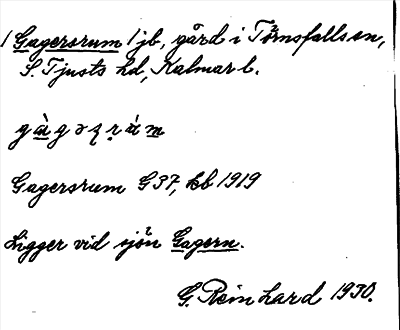 1 Gagersrum 1 jb, gård i Törnsfalls sn,
S. Tjusts hd, Kalmar l.
gàgəʀṣrám
Gagersrum G37, kb 1919
Ligger vid sjön Gagern.
G. Reinhard 1930.